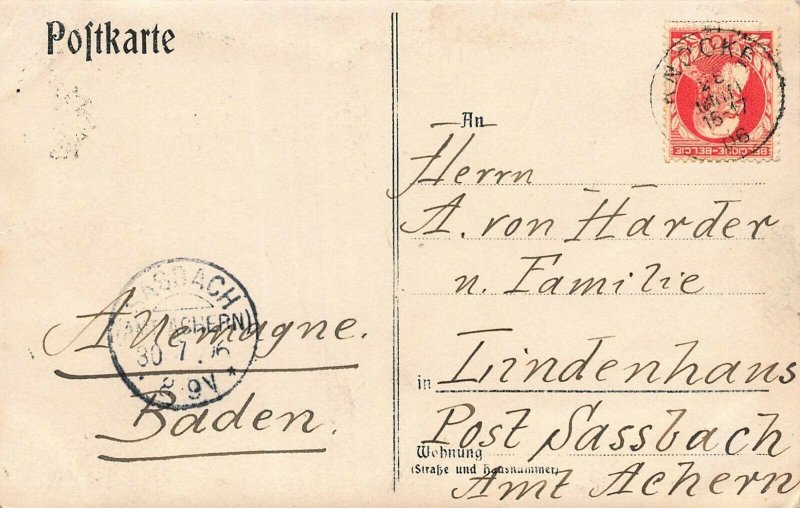 Postkarte
KNOCKE
15-17
06
BELGIQUE-BELGIE
An
Herrn
A. von Harder
u. Familie
in Lindenhaus
Post Sassbach
Wohnung
(Straße und Hausnummer)
Amt Achern
SASBACH
(AMT ACHERN)
30 7 06
8-9V
Allemagne.
Baden.